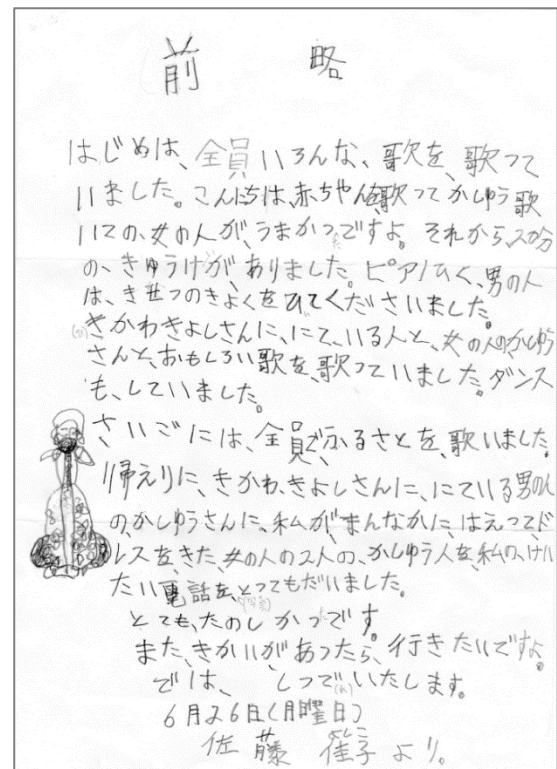 前 略
はじめは、全員いろんな、歌を、歌って
いました。こんにちは、赤ちゃんを、歌って かしゅう歌
いての、女の人が、うまかったですよ。それから、20分
の、きゅうけいが、ありました。ピアノひく、男の人
は、きせつのきょくをひてくださいました。
(ひ)きかわきよしさんに、にて、いる人と、女の人のかしゅう
さんと、おもしろい歌を、歌っていました。ダンス
も、していました。
さいごには、全員でふるさとを、歌いました。
帰えりに、きかわ、きよしさんに、にている男の人
の、かしゅうさんに、私が、まんなかに、はえってド
レスをきた、女の人の2人の、かしゅう人を、私の、けい
たい電話を、とってもだいました。
(写真)
とても、たのしかったです。
また、きかいが、あったら、行きたいですよ。
では、しつでいいたします。
(れ)
6月26日(月曜日)
佐藤 子より。